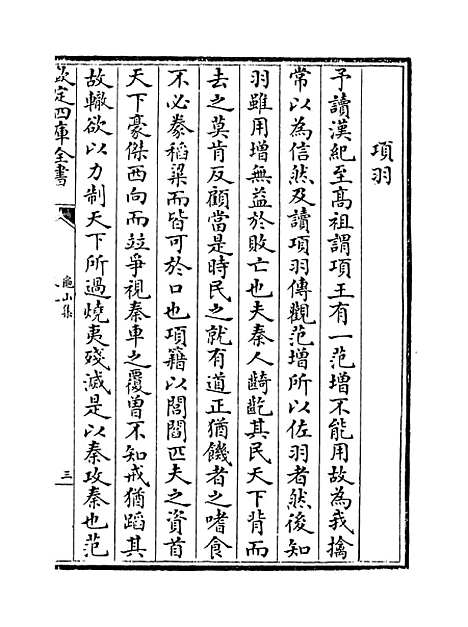 項羽
予讀漢紀至髙祖謂項王有一范增不能用故為我擒
常以為信然及讀項羽傳觀范增所以佐羽者然後知
羽雖用增無益於敗亡也夫秦人齮齕其民天下背而
去之莫肯反顧當是時民之就有道正猶饑者之嗜食
不必豢稻粱而皆可於口也項籍以閭閻匹夫之資首
天下豪傑西向而竝爭視秦車之覆曽不知戒猶蹈其
故轍欲以力制天下所過燒夷殘滅是以秦攻秦也范
欽定四庫全書
龜山集
三